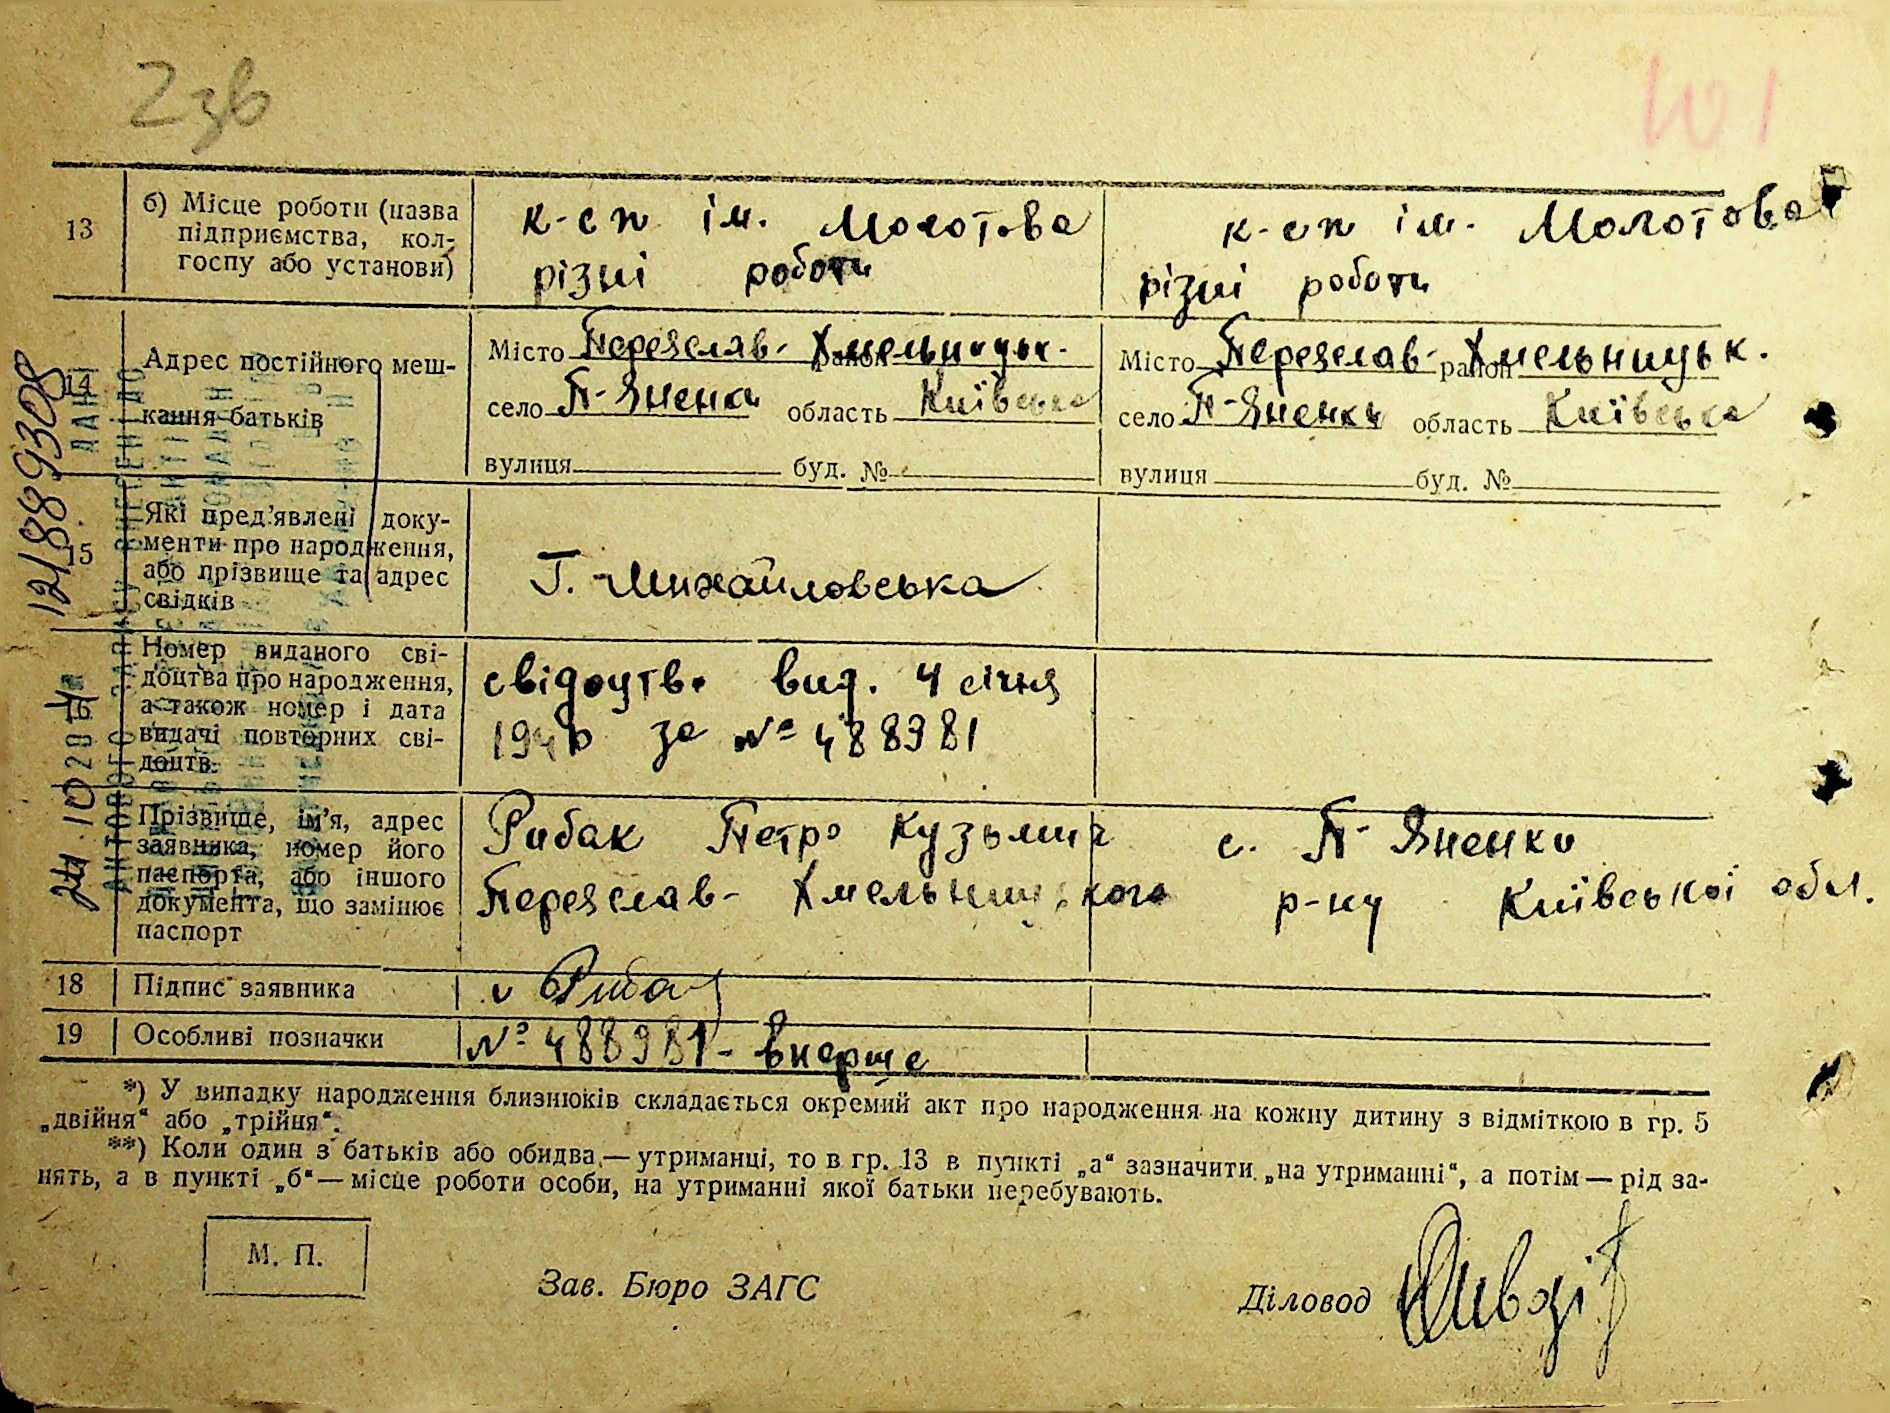 2зв
101
13
б) Місце роботи (назва
підприємства, кол-
госпу або установи)
к-сп ім. Молотова
різні роботи
к-сп ім. Молотова
різні роботи
14
Адрес постійного меш-
кання батьків
Місто Переяслав- район Хмельницьк.
село П-Яненки область Київська
вулиця буд. №
Місто Переяслав- район Хмельницьк.
село П-Яненки область Київська
вулиця буд. №
15
Які пред'явлені доку-
менти про народження,
або прізвище та адрес
свідків
Г. Михайловська
16
Номер виданого сві-
доцтва про народження,
а також номер і дата
видачі повторних сві-
доцтв
свідоцтво вид. 4 січня
1940 за № 488981
Прізвище, ім'я, адрес
заявника, номер його
паспорта, або іншого
документа, що замінює
паспорт
Рибак Петро Кузьмич с. П-Яненки
Переяслав-Хмельницького р-ну Київської обл.
18
Підпис заявника
Рибак
19
Особливі позначки
№ 488981 - вперше
*) У випадку народження близнюків складається окремий акт про народження на кожну дитину з відміткою в гр. 5
„двійня“ або „трійня“.
**) Коли один з батьків або обидва — утриманці, то в гр. 13 в пункті „а“ зазначити „на утриманні“, а потім — рід за-
нять, а в пункті „б“ — місце роботи особи, на утриманні якої батьки перебувають.
М. П.
Зав. Бюро ЗАГС
Діловод
12188 9308
24.10.20